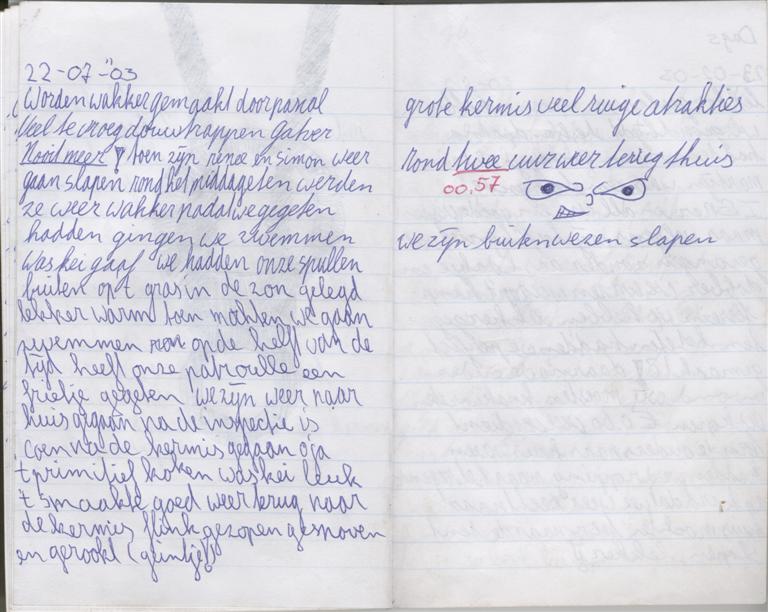 22-07-"03
Worden wakker gemaakt door pascal
Veel te vroeg douwtrappen Gaber
Nooid meer! toen zijn renee en simon weer
gaan slapen rond het middageten werden
ze weer wakker nadat we gegeten
hadden gingen we zwemmen
was kei gaaf we hadden onze spullen
buiten op t gras in de zon gelegd
lekker warm toen mochten we gaan
zwemmen op de helft van de
tijd heeft onze patroulle een
frietje gegeten we zijn weer naar
huis gegaan na de inspectie is
coen na de kermis gegaan o ja
t primitief koken was kei leuk
't smaakte goed weer terug naar
de kermies flink gezopen gesnoven
en gerookt (geintje!)
grote kermis veel ruige atrakties
rond twee uur weer terieg thuis
00,57
we zijn buiten wezen slapen
Dags